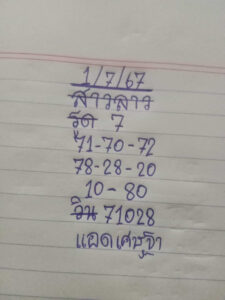 1/7/67
สาวลาว
รูด 7
71-70-72
78-28-20
10-80
วิน 71028
แอดเศษฐา